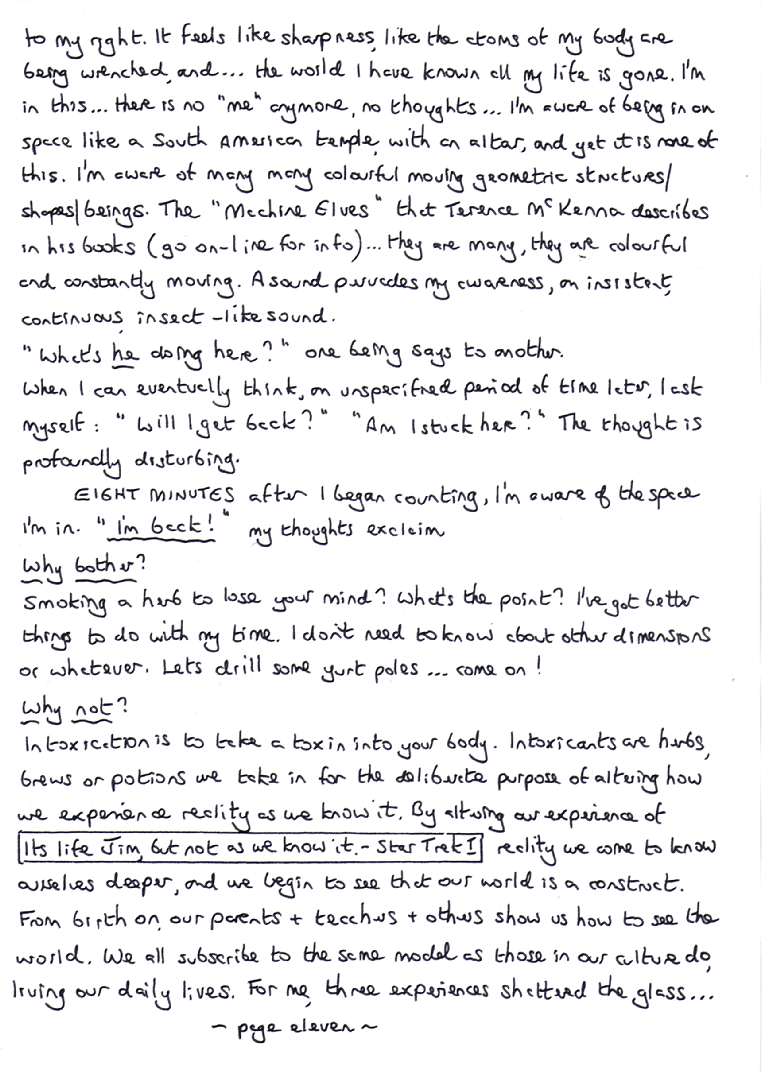 to my right. It feels like sharpness, like the atoms of my body are
being wrenched, and... the world I have known all my life is gone. I'm
in this... there is no "me" anymore, no thoughts... I'm aware of being in an
space like a South American temple, with an altar, and yet it is none of
this. I'm aware of many many colourful moving geometric structures/
shapes/beings. The "Machine Elves" that Terence McKenna describes
in his books (go on-line for info)... they are many, they are colourful
and constantly moving. A sound pervades my awareness, an insistent,
continuous, insect-like sound.
"What's he doing here?" one being says to another.
When I can eventually think, an unspecified period of time later, I ask
myself: "Will I get back?" "Am I stuck here?" The thought is
profoundly disturbing.
EIGHT MINUTES after I began counting, I'm aware of the space
I'm in. "I'm back!" my thoughts exclaim
Why bother?
Smoking a herb to lose your mind? What's the point? I've got better
things to do with my time. I don't need to know about other dimensions
or whatever. Lets drill some yurt poles... come on!
Why not?
Intoxication is to take a toxin into your body. Intoxicants are herbs,
brews or potions we take in for the deliberate purpose of altering how
we experience reality as we know it. By altering our experience of
Its life Jim, but not as we know it. - Star Trek I reality we come to know
ourselves deeper, and we begin to see that our world is a construct.
From birth on, our parents + teachers + others show us how to see the
world. We all subscribe to the same model as those in our culture do,
living our daily lives. For me, three experiences shattered the glass...
~ page eleven ~